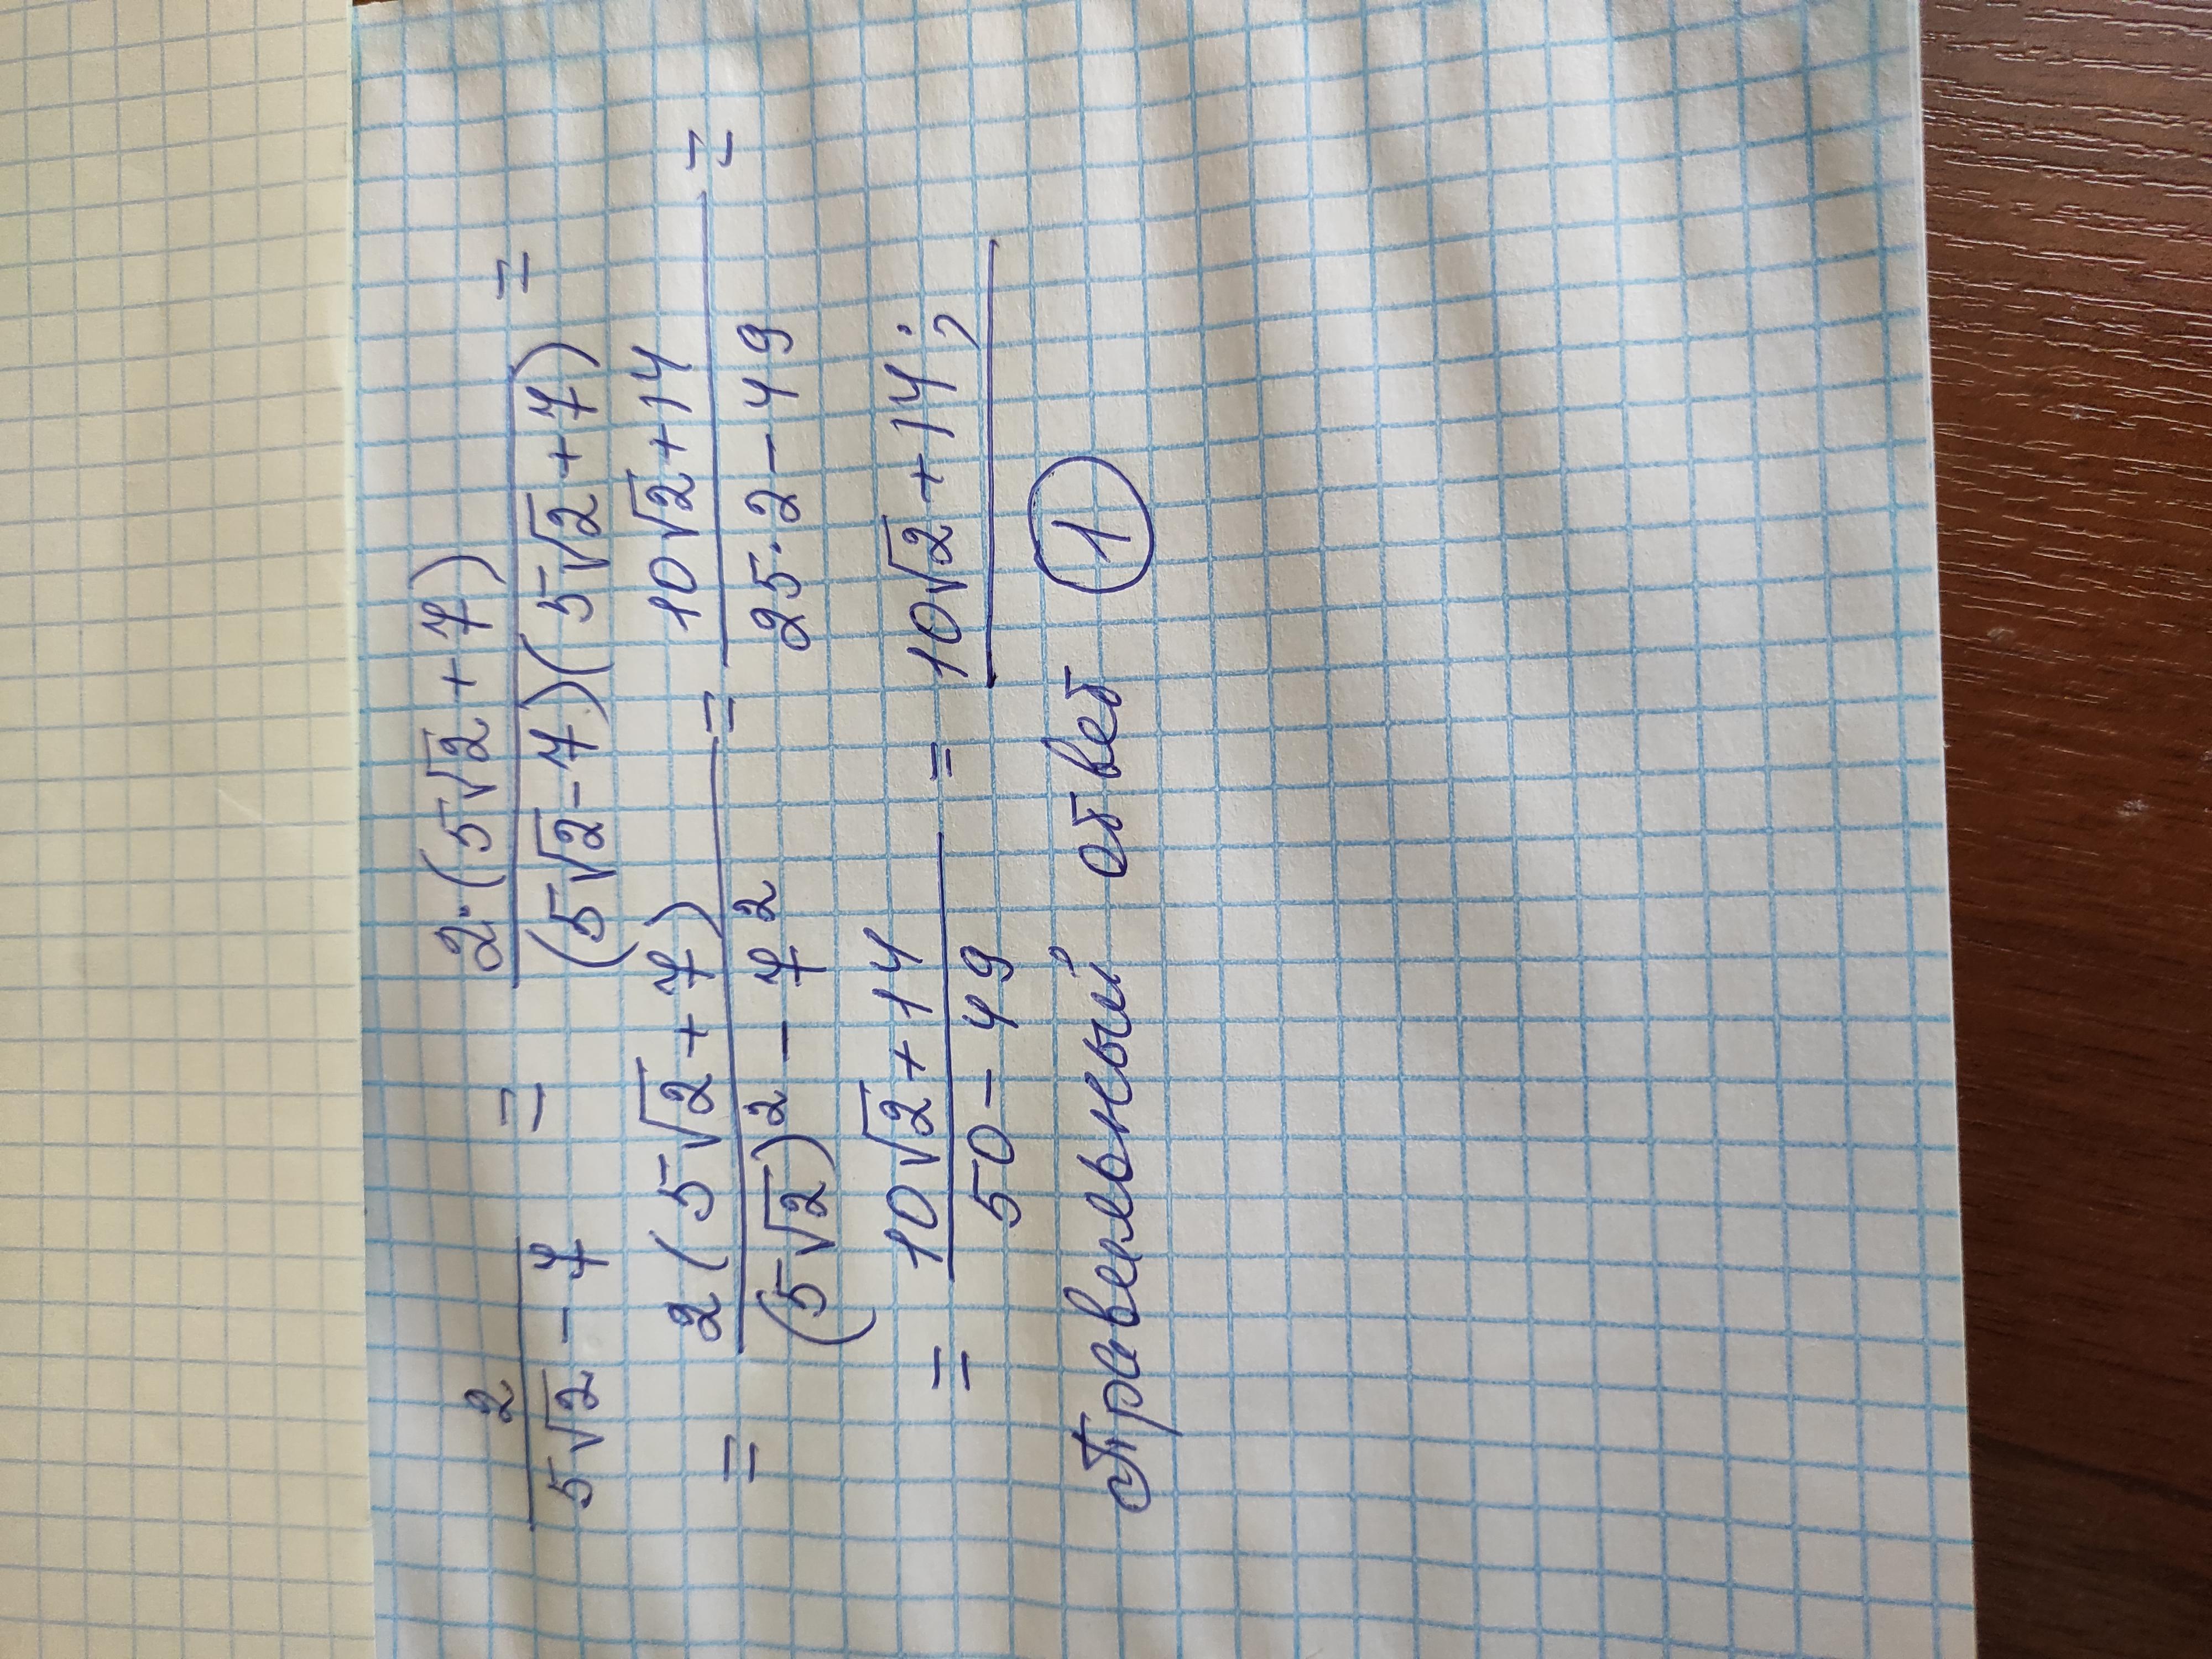 2/(5√2 - 7) = 2·(5√2 + 7)/((5√2 - 7)(5√2 + 7)) =
= 2(5√2 + 7)/((5√2)² - 7²) = (10√2 + 14)/(25·2 - 49) =
= (10√2 + 14)/(50 - 49) = 10√2 + 14;
Правельный ответ 1